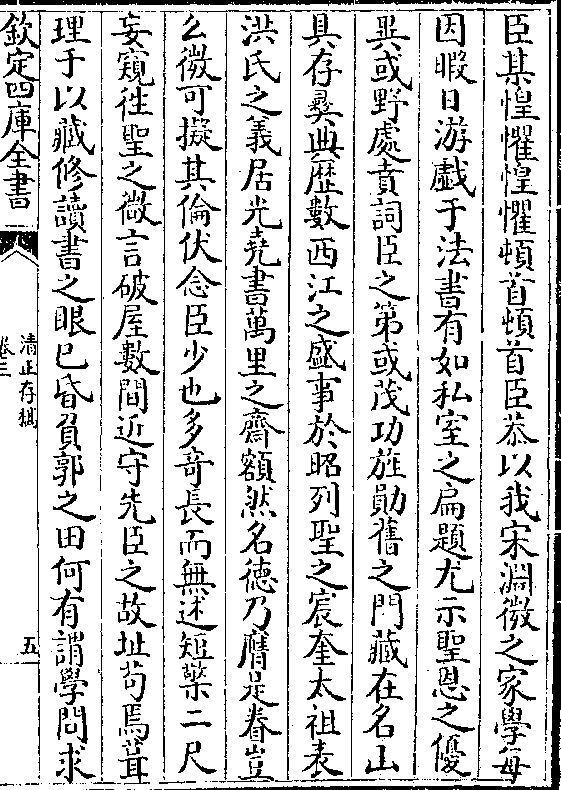 臣某惶懼惶懼頓首頓首臣恭以我宋淵微之家學每
因暇日游戲于法書有如私室之扁題尤示聖恩之優
異或野處賁詞臣之第或茂功旌勛舊之門藏在名山
具存彛典歴數西江之盛事於昭列聖之宸奎太祖表
洪氏之義居光堯書萬里之齋額然名德乃膺是眷豈
幺微可擬其倫伏念臣少也多竒長而無述短檠二尺
妄窺徃聖之微言破屋數間近守先臣之故址茍焉葺
理于以藏修讀書之眼已昏負郭之田何有謂學問求
欽定四庫全書
清正存稿
卷三
五